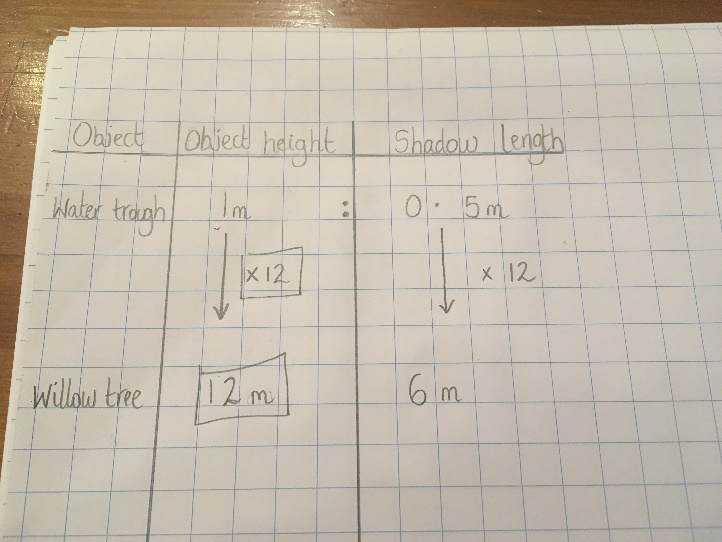 Object Object height Shadow length
Water trough 1m : 0.5m
×12 ×12
Willow tree 12m 6m